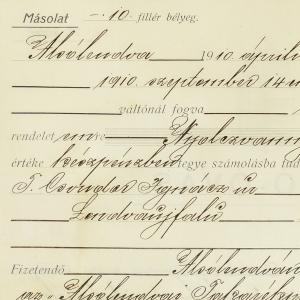 Másolat — 10. fillér bélyeg.
Alsólendva 1910. április
1910. szeptember 14-én
váltónál fogva
rendelet emre Nyolczvann
értéke készpénzben tegye számolásba tud
T. Csondor Ignácz úr
Lendvaujfalu
Fizetendő Alsólendván
az „Alsólendvai Takarékp